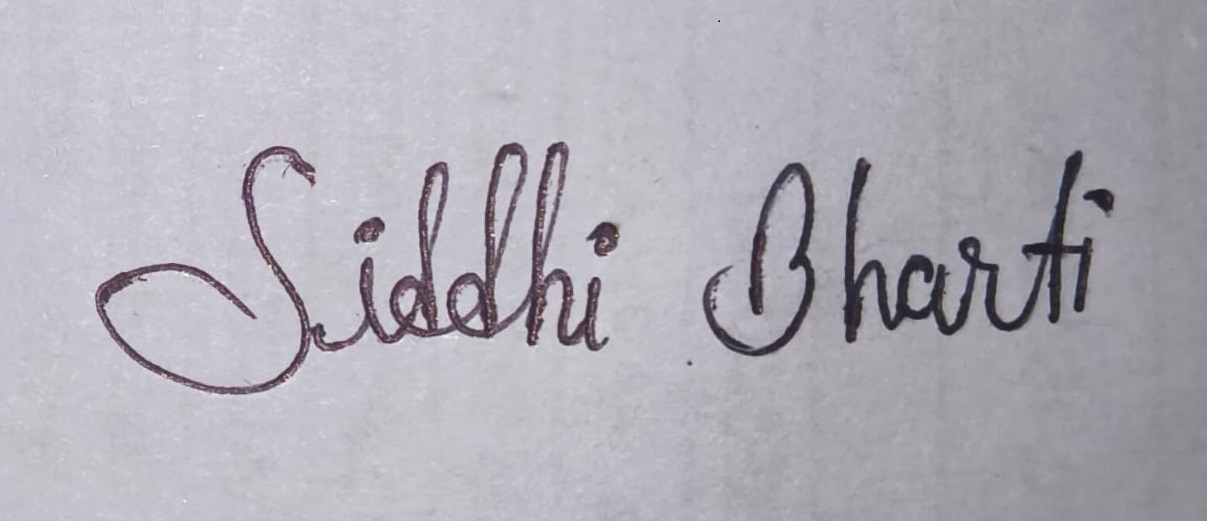 Siddhi Bharti